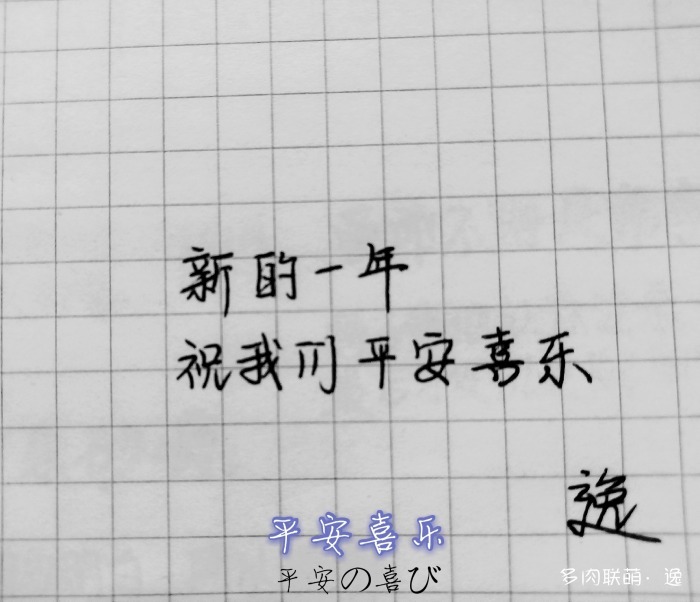 新的一年
祝我们平安喜乐
逸
平安喜乐
平安の喜び
多肉联萌·逸